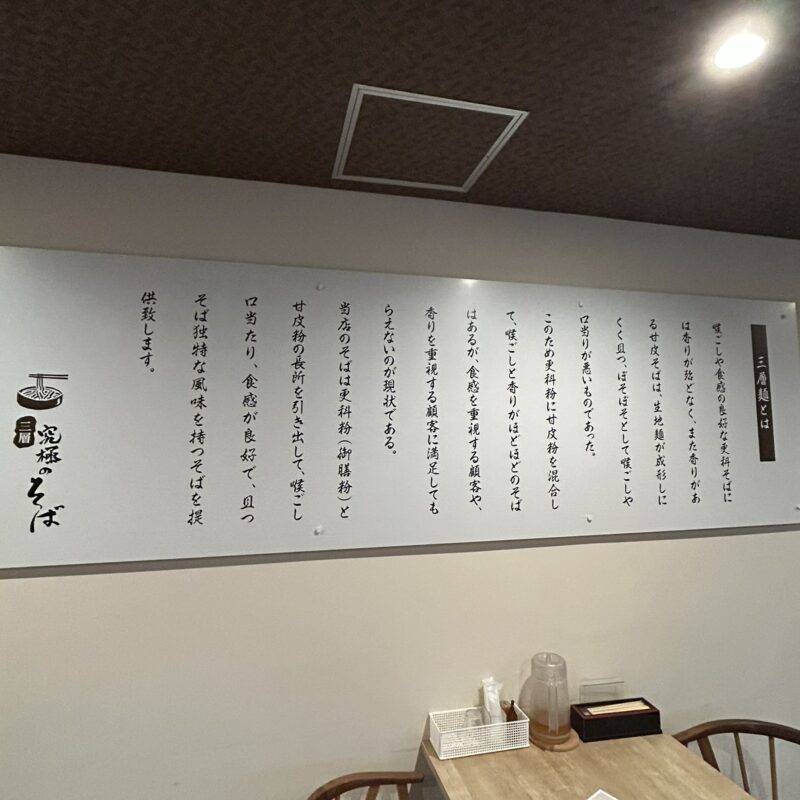 三層麺とは
喉ごしや食感の良好な更科そばに
は香りが殆どなく、また香りがあ
る甘皮そばは、生地麺が成形しに
くく且つ、ぼそぼそとして喉ごしや
口当りが悪いものであった。
このため更科粉に甘皮粉を混合し
て、喉ごしと香りがほどほどのそば
はあるが、食感を重視する顧客や、
香りを重視する顧客に満足しても
らえないのが現状である。
当店のそばは更科粉(御膳粉)と
甘皮粉の長所を引き出して、喉ごし
口当たり、食感が良好で、且つ
そば独特な風味を持つそばを提
供致します。
三層
究極のそば